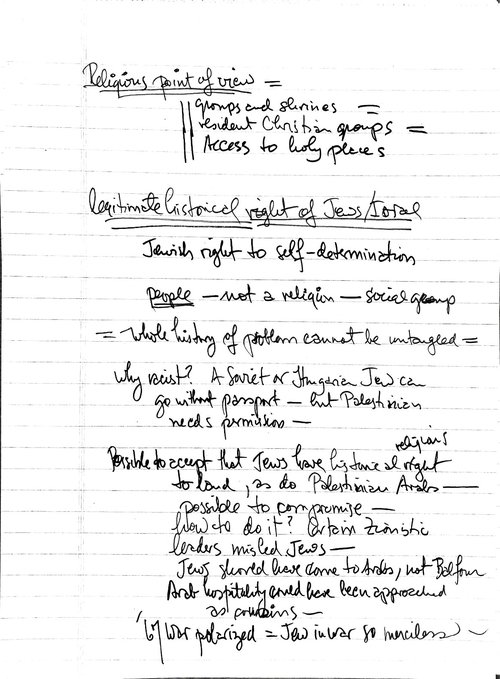 Religious point of view =
groups and shrines =
resident Christian groups =
Access to holy places
legitimate historical right of Jews/Israel
Jewish right to self-determination
people — not a religion — social group
= Whole history of problem cannot be untangled =
Why racist? A Soviet or Hungarian Jew can
go without passport — but Palestinian
needs permission —
religious
Possible to accept that Jews have historical right
to land, as do Palestinian Arabs —
possible to compromise —
how to do it? Certain Zionistic
leaders misled Jews —
Jews should have come to Arabs, not Balfour
Arab hospitality could have been approached
as cousins —
'67 War polarized = Jew in war so merciless —